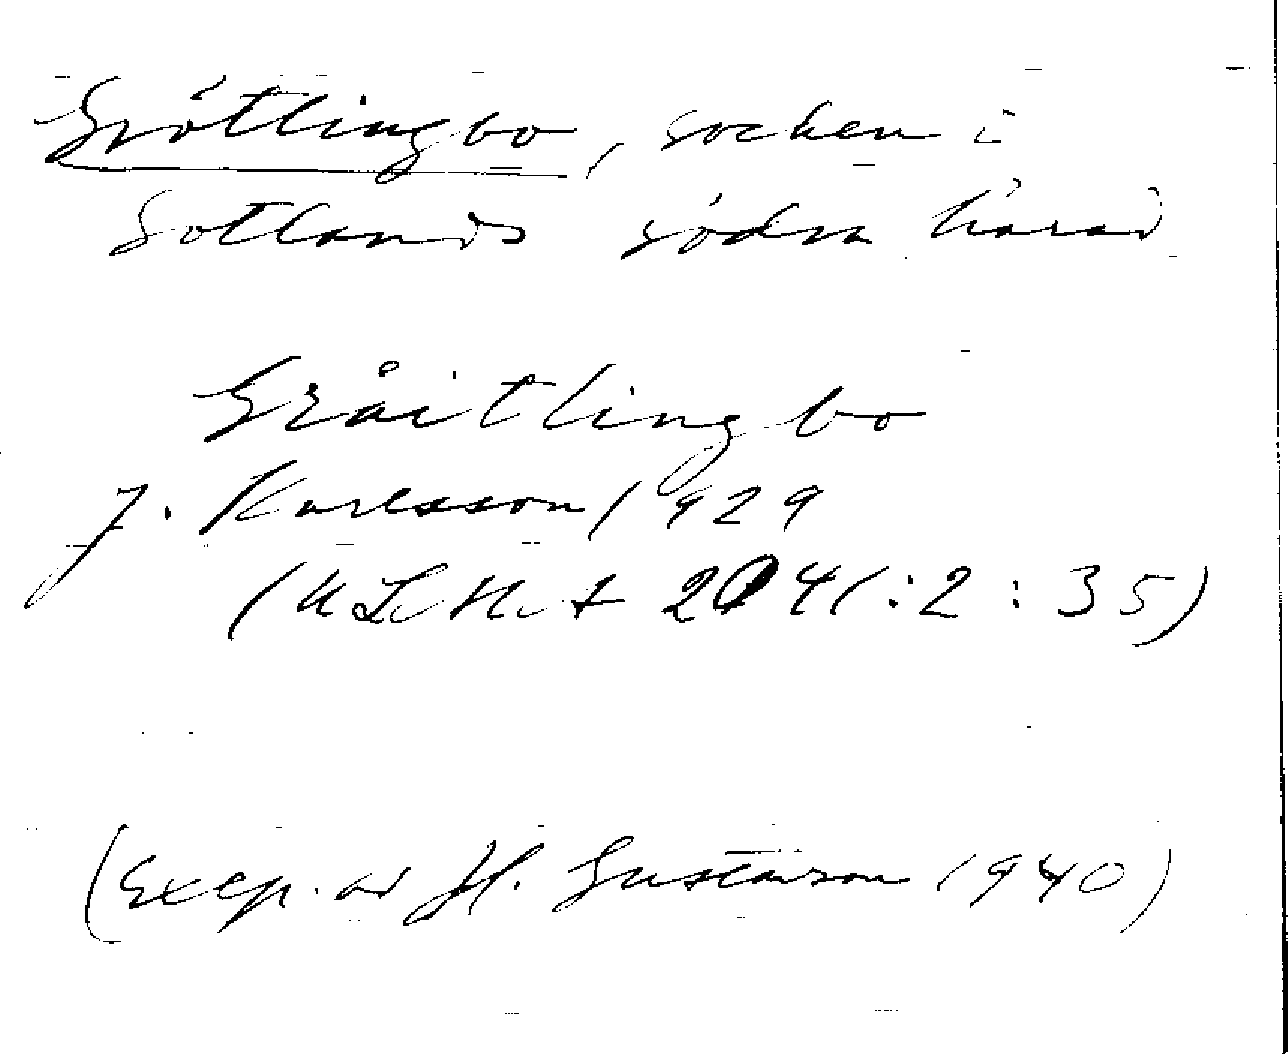 Grötlingbo, socken i
Gotlands södra härad
Gråitlingbo
J. Karlsson 1929
(ULMA 2041:2:35)
(Excp. av H. Gustavson 1940)